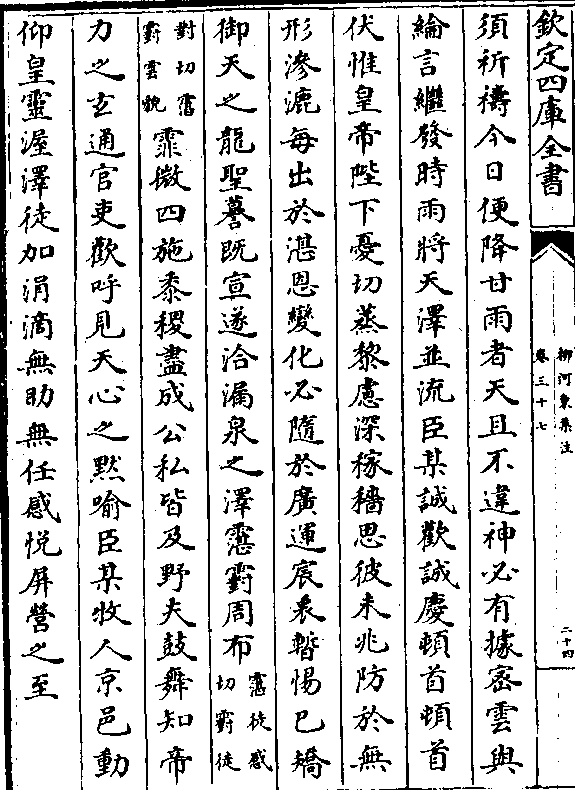 欽定四庫全書
柳河東集注
卷三十七
二十四
須祈禱今日便降甘雨者天且不違神必有據密雲與
綸言繼發時雨將天澤並流臣某誠歡誠慶頓首頓首
伏惟皇帝陛下憂切蒸黎慮深稼穡思彼未兆防於無
形滲漉每出於湛恩變化必隨於廣運宸衷暫惕已矯
御天之龍聖謩既宣遂洽漏泉之澤霮䨴周布霮徒感切䨴徒
對切霮䨴雲貌霏微四施黍稷盡成公私皆及野夫鼓舞知帝
力之玄通官吏歡呼見天心之黙喻臣某牧人京邑動
仰皇靈渥澤徒加涓滴無助無任感悅屏營之至